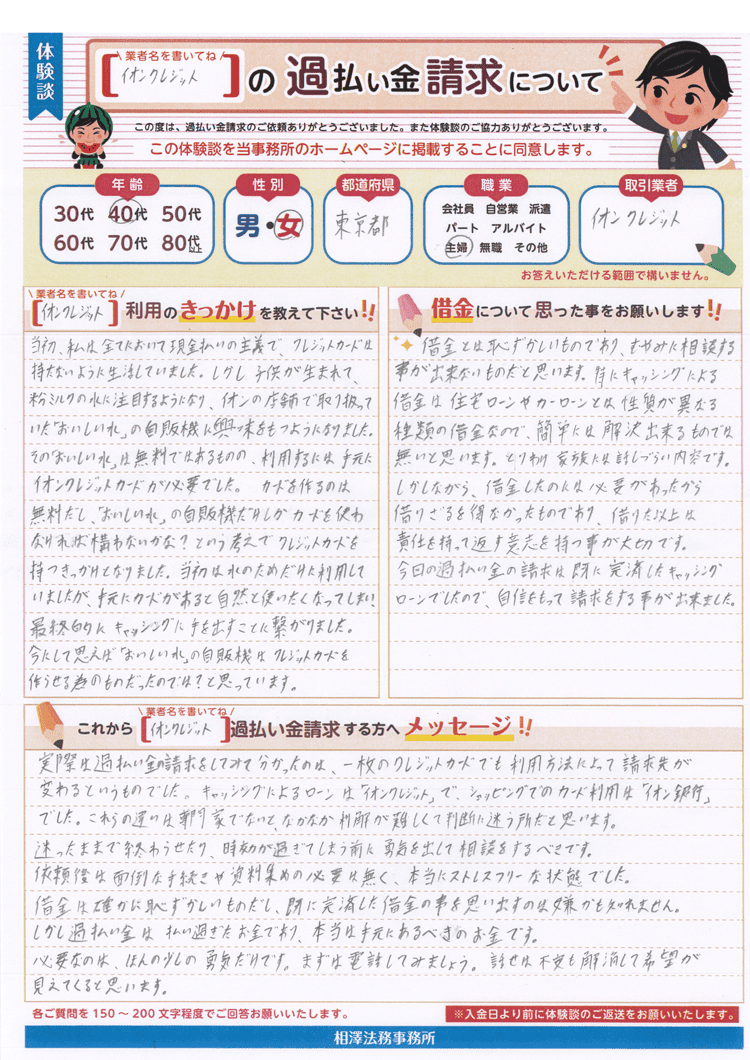 体験談
業者名を書いてね
[イオンクレジット]の 過払い金請求について
この度は、過払い金請求のご依頼ありがとうございました。また体験談のご協力ありがとうございます。
この体験談を当事務所のホームページに掲載することに同意します。
年齢
30代 40代 50代
60代 70代 80代以上
性別
男・女
都道府県
東京都
職業
会社員 自営業 派遣
パート アルバイト
主婦 無職 その他
取引業者
イオンクレジット
お答えいただける範囲で構いません。
業者名を書いてね
[イオンクレジット] 利用のきっかけを教えて下さい!!
当初、私は全てにおいて現金払いの主義で、クレジットカードは
持たないように生活していました。しかし子供が生まれて、
粉ミルクの水に注目するようになり、イオンの店舗で取り扱って
いた「おいしい水」の自販機に興味をもつようになりました。
その「おいしい水」は無料ではあるものの、利用するには手元に
イオンクレジットカードが必要でした。 カードを作るのは
無料だし、「おいしい水」の自販機だけしかカードを使わ
なければ構わないかな?という考えでクレジットカードを
持つきっかけとなりました。当初は水のためだけに利用して
いましたが、手元にカードがあると自然と使いたくなってしまい、
最終的にキャッシングに手を出すことに繋がりました。
今にして思えば「おいしい水」の自販機はクレジットカードを
作らせる為のものだったのでは?と思っています。
借金について思った事をお願いします!!
借金とは恥ずかしいものであり、むやみに相談する
事が出来ないものだと思います。特にキャッシングによる
借金は住宅ローンやカーローンとは性質が異なる
種類の借金なので、簡単には解決出来るものでは
無いと思います。とりわけ家族には話しづらい内容です。
しかしながら、借金したのには必要があったから
借りざるを得なかったものであり、借りた以上は
責任を持って返す意志を持つ事が大切です。
今回の過払い金の請求は既に完済したキャッシング
ローンでしたので、自信をもって請求をする事が出来ました。
業者名を書いてね
これから[イオンクレジット]過払い金請求する方へメッセージ!!
実際に過払い金の請求をしてみて分かったのは、一枚のクレジットカードでも利用方法によって請求先が
変わるというものでした。キャッシングによるローンは「イオンクレジット」で、ショッピングでのカード利用は「イオン銀行」
でした。これらの違いは専門家でないと、なかなか判断が難しくて判断に迷う所だと思います。
迷ったままで終わらせたり、時効が過ぎてしまう前に勇気を出して相談をするべきです。
依頼後は面倒な手続きや資料集めの必要は無く、本当にストレスフリーな状態でした。
借金は確かに恥ずかしいものだし、既に完済した借金の事を思い出すのは嫌かも知れません。
しかし過払い金は払い過ぎたお金であり、本当は手元にあるべきのお金です。
必要なのは、ほんの少しの勇気だけです。まずは電話してみましょう。話せば不安も解消して希望が
見えてくると思います。
各ご質問を150～200文字程度でご回答お願いいたします。
※入金日より前に体験談のご返送をお願いいたします。
相澤法務事務所